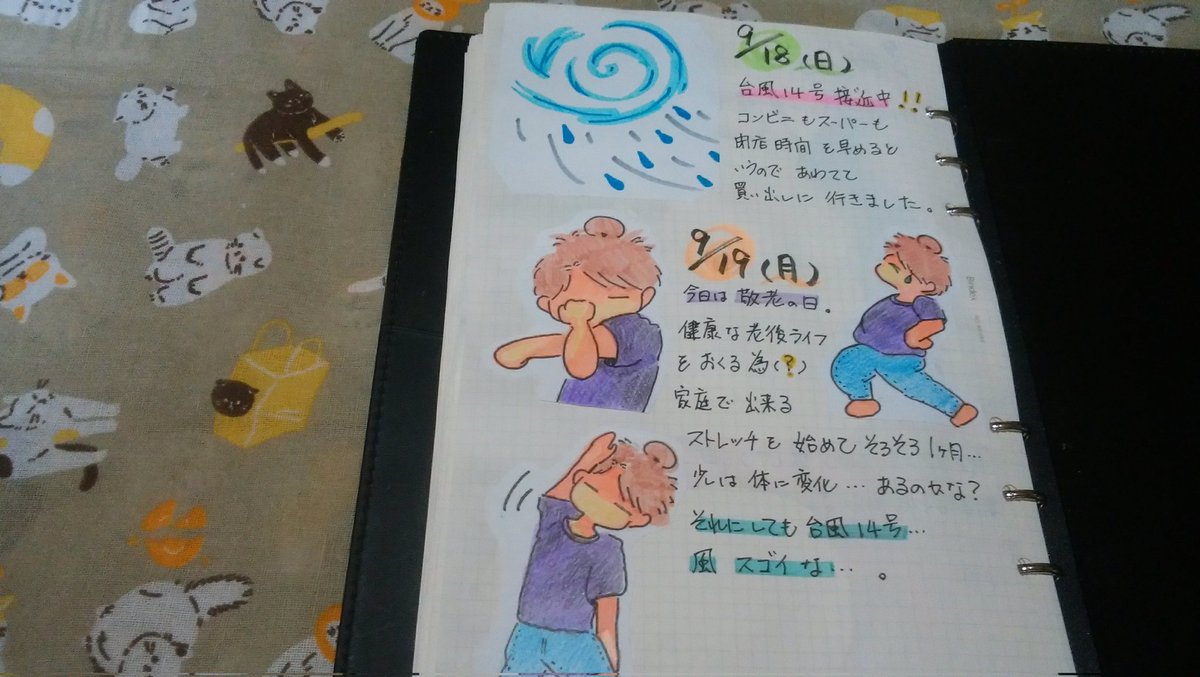 9/18(日)
台風14号 接近中!!
コンビニもスーパーも
閉店時間を早めると
いうので あわてて
買い出しに 行きました。
9/19(月)
今日は 敬老の日。
健康な老後ライフ
をおくる為(?)
家庭で出来る
ストレッチを 始めて そろそろ1ヶ月…
少しは 体に変化… あるのかな?
それにしても 台風14号…
風 スゴイな…。